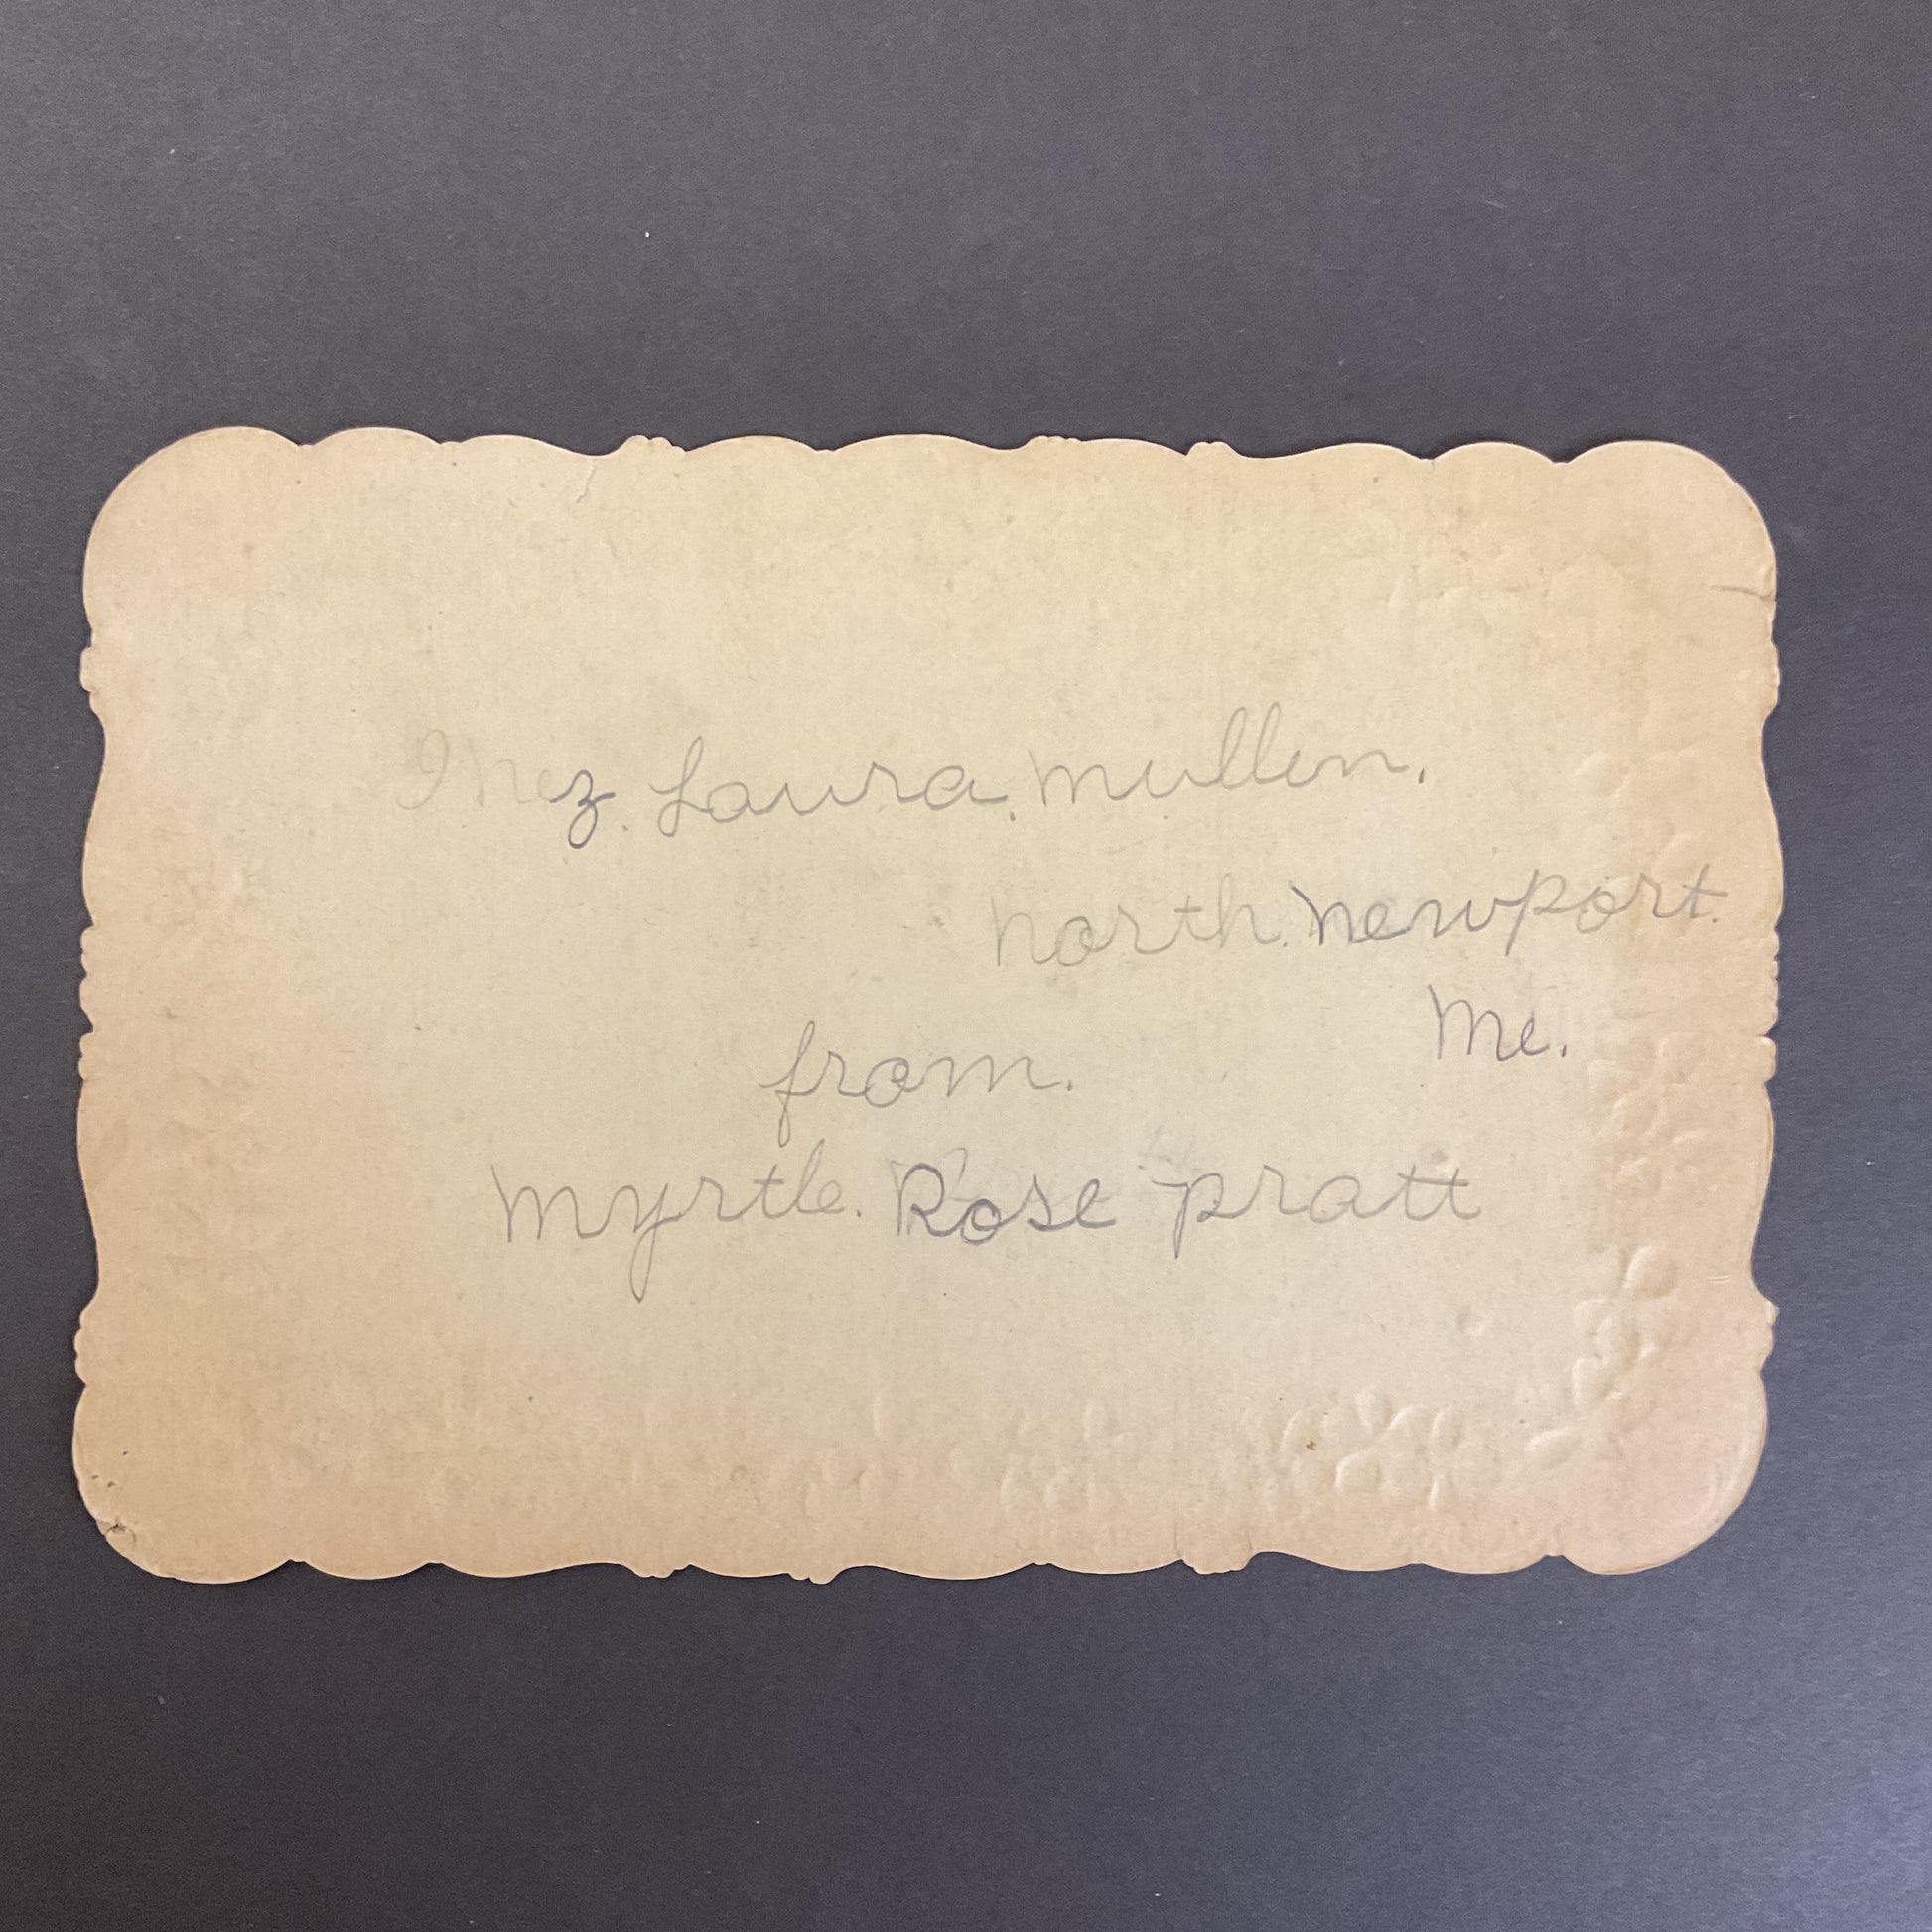 Inez. Laura. Mullen.
North. Newport.
Me.
from.
Myrtle. Rose Pratt